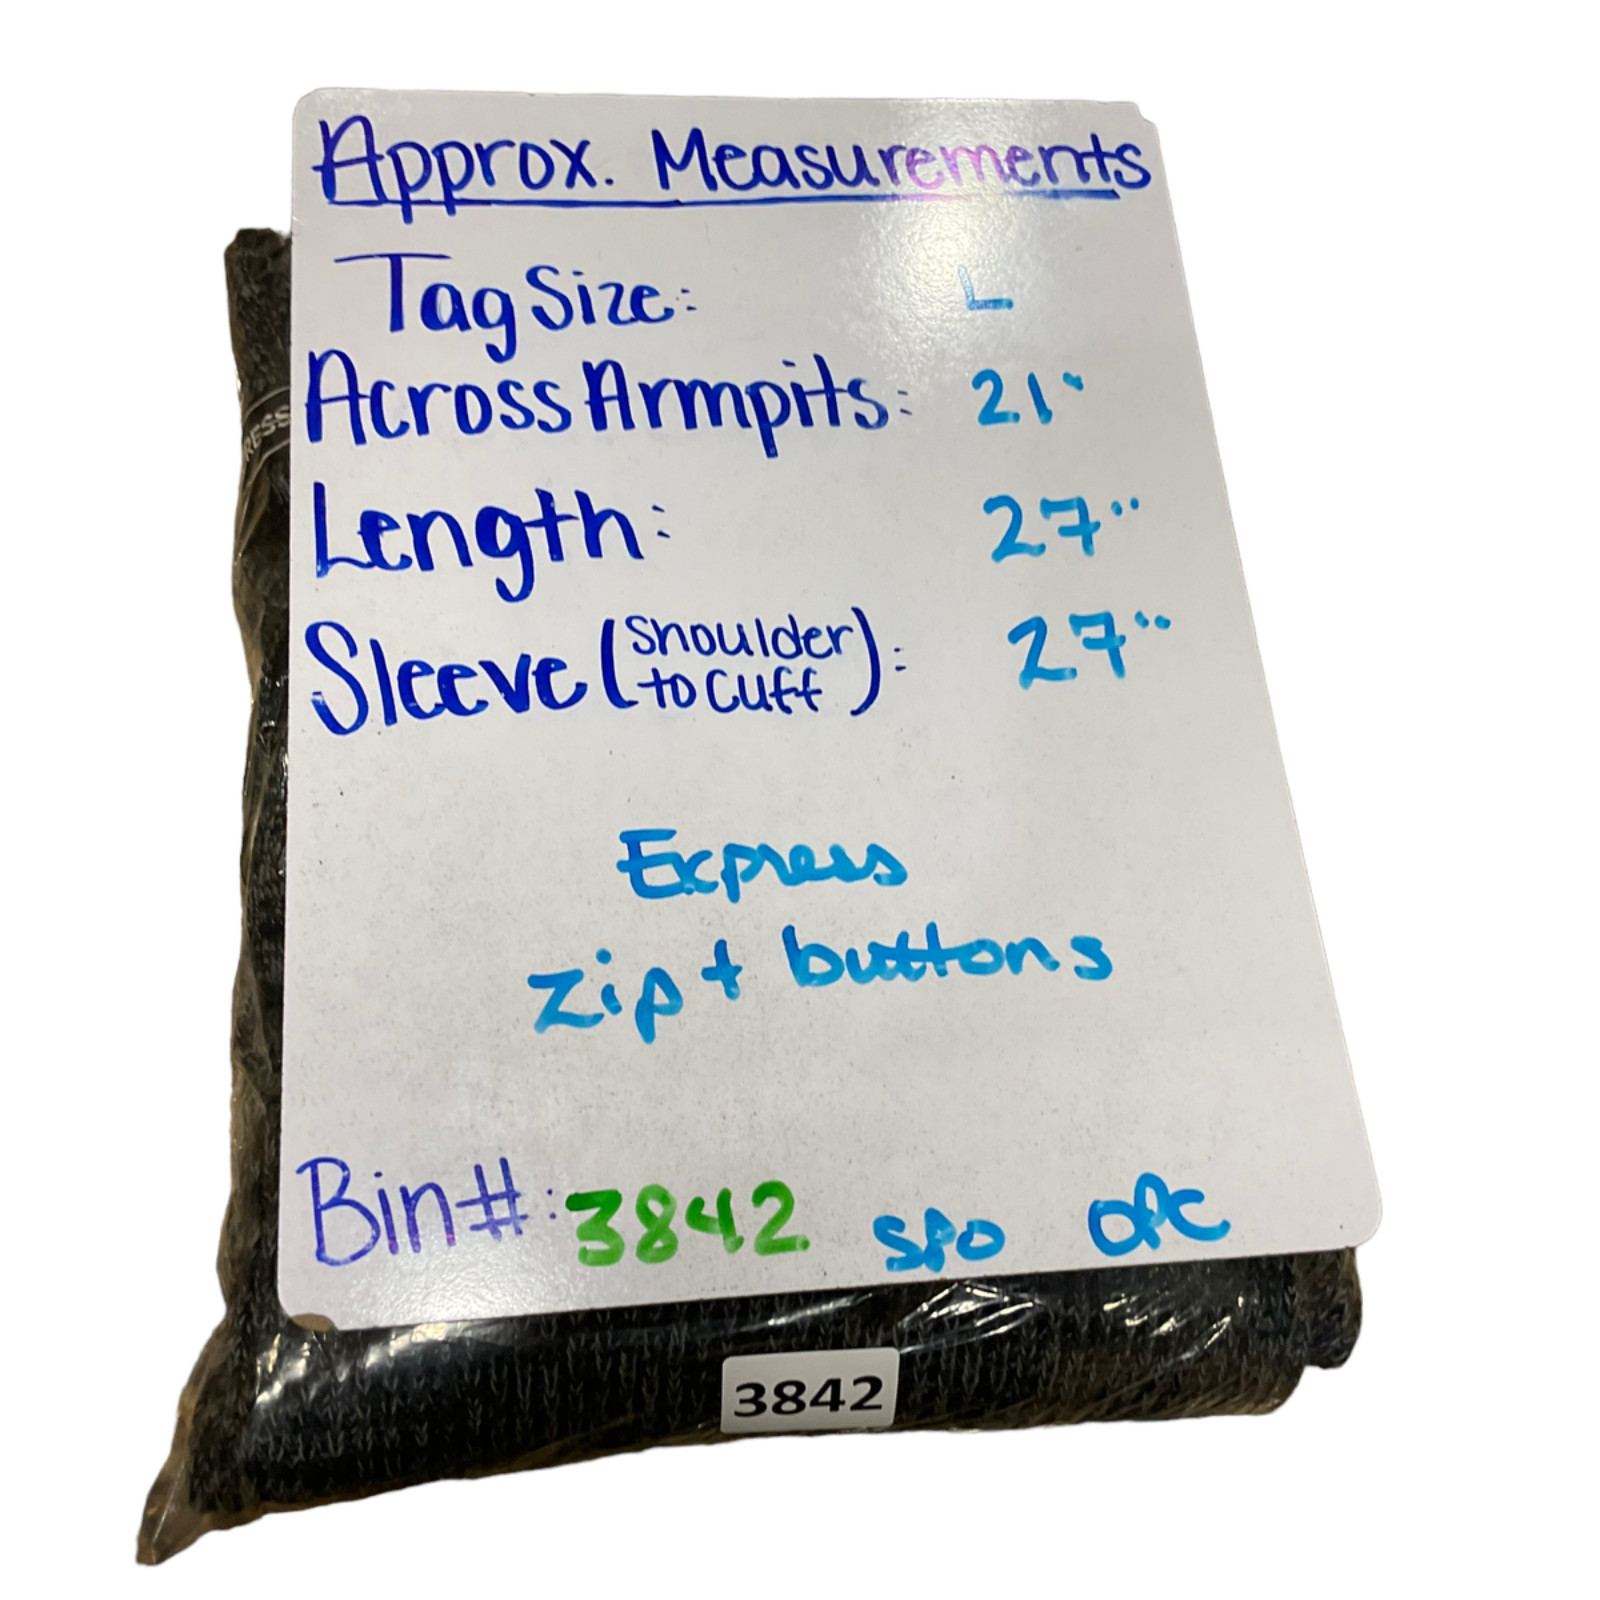 Approx. Measurements
Tag Size: L
Across Armpits: 21"
Length: 27"
Sleeve (Shoulder to Cuff): 27"
Express
Zip + buttons
Bin #: 3842 SPO OPC
RESS
3842